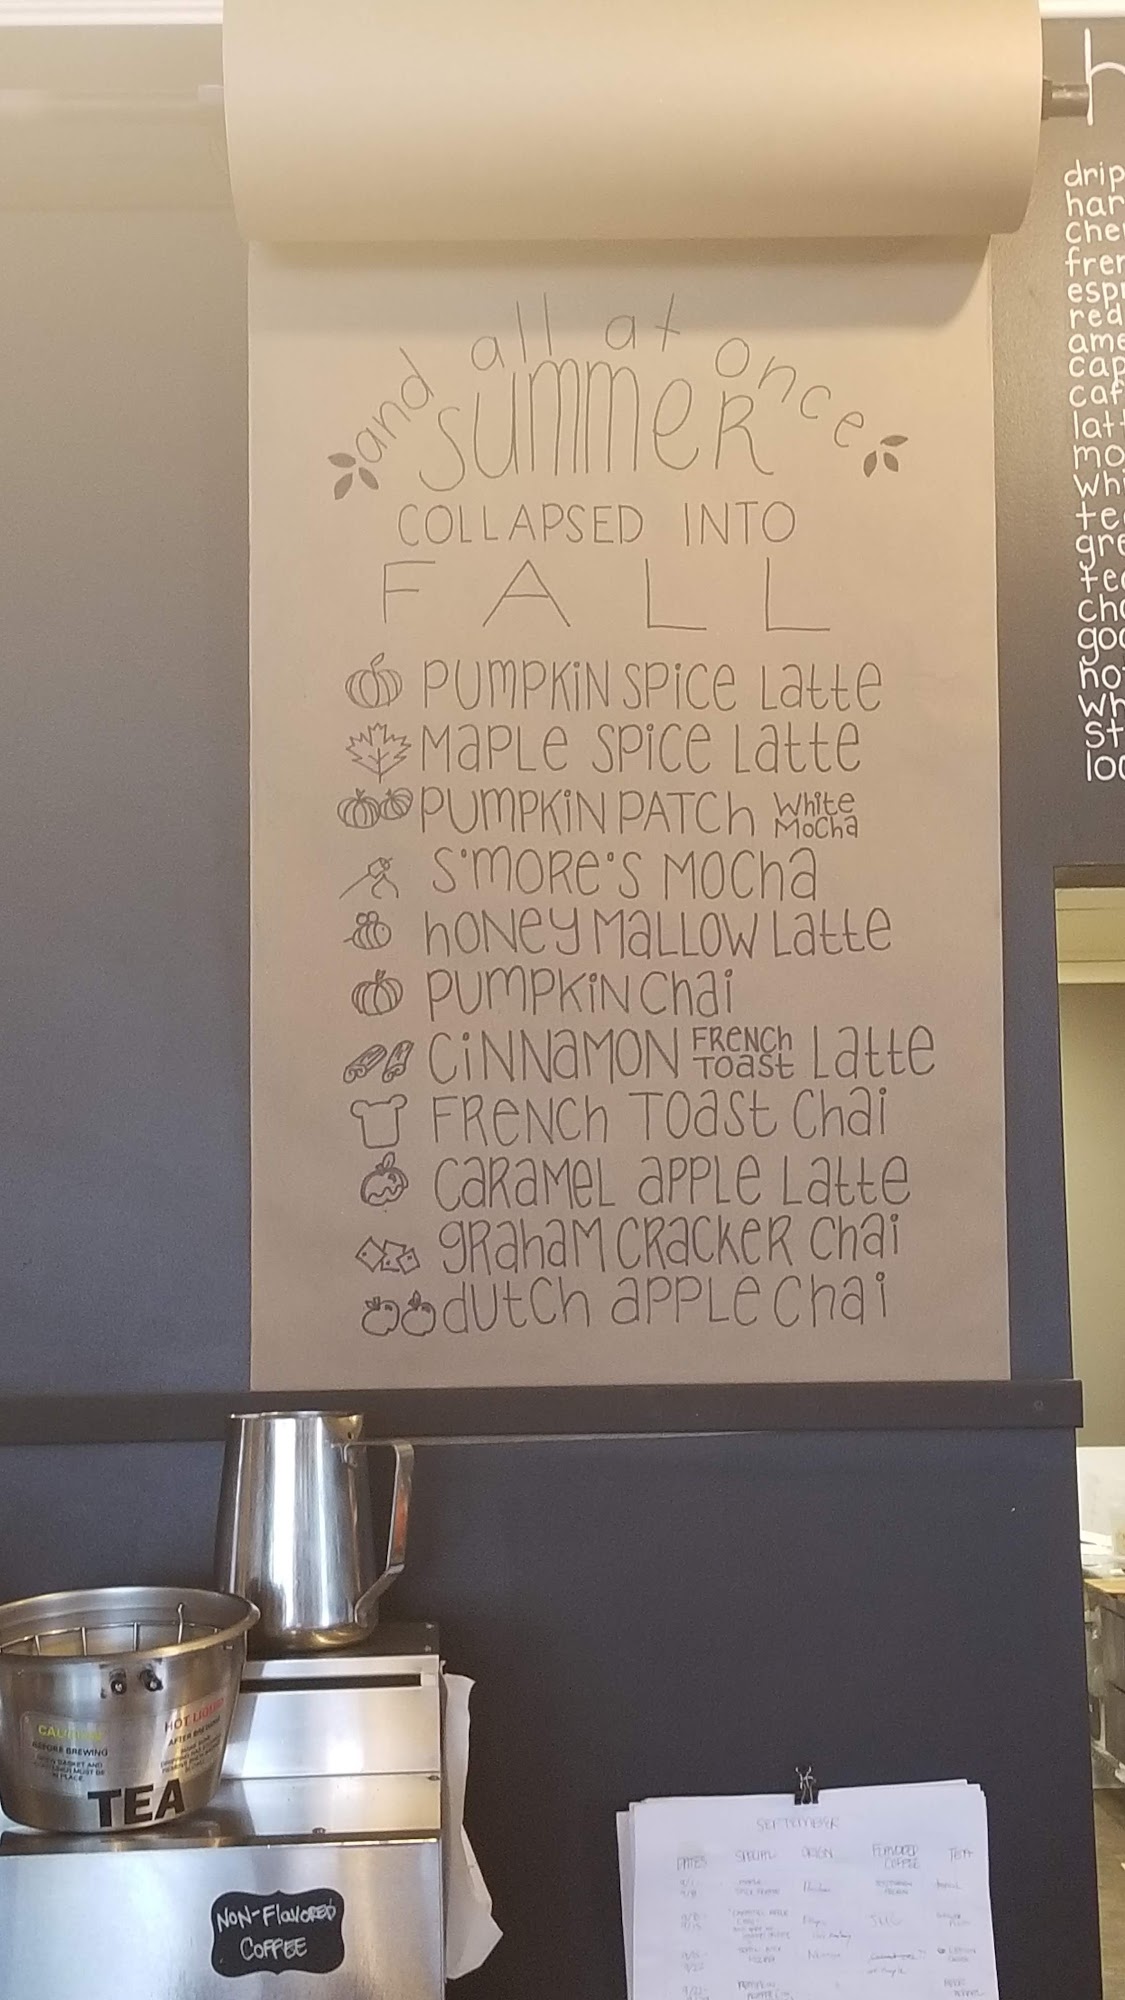 and all at once
SUMMER
COLLAPSED INTO
FALL
PUMPKIN SPICE Latte
MAPLE SPICE Latte
PUMPKIN PATCH White Mocha
S'MORE'S MOCHA
HONEY MALLOW Latte
PUMPKIN Chai
CINNAMON FRENCH TOAST Latte
FRENCH TOAST Chai
CARAMEL APPLE Latte
GRAHAM CRACKER Chai
DUTCH APPLE Chai
h
drip
har
che
fren
espr
red
ame
cap
caf
latt
mo
whi
tea
gre
tea
cha
goo
hot
wh
st
loc
HOT LIQUID
AFTER BREWING
BEFORE BREWING
TEA
NON-FLAVORED
COFFEE
SEPTEMBER
DATES SPECIAL ORIGIN FLAVORED COFFEE TEA